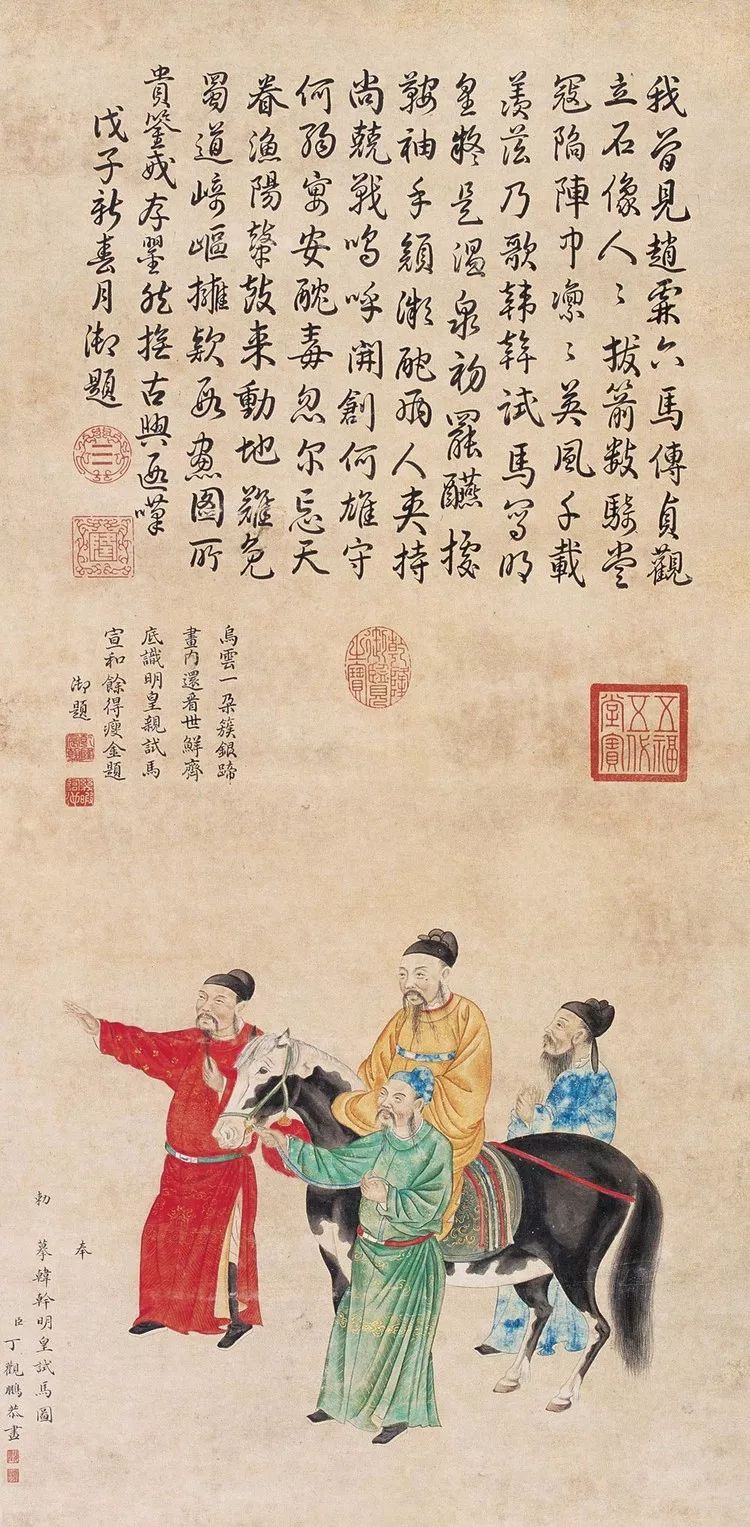 我曾見趙霖六馬傳貞觀
立石像人〻拔箭數騎
寇陷陣中凜〻英風千載
羨茲乃歌韓幹試馬寫明
皇疑是温泉初罷醼據
鞍袖手顏微酡兩人夾持
尚兢戰嗚呼開創何雄守
何弱宴安酖毒忽尔忘天
眷漁陽鼙鼓来動地難免
蜀道崎嶇擁畫圖所
貴鑒戒存翟然撫古興遐嘆
戊子新春月御題
烏雲一朶簇銀蹄
畫内還看世鮮齊
底識明皇親試馬
宣和餘得瘦金題
御題
乾隆御覽之寶
五福五代堂寶
奉
勅
摹韓幹明皇試馬圖
臣丁觀鵬恭畫